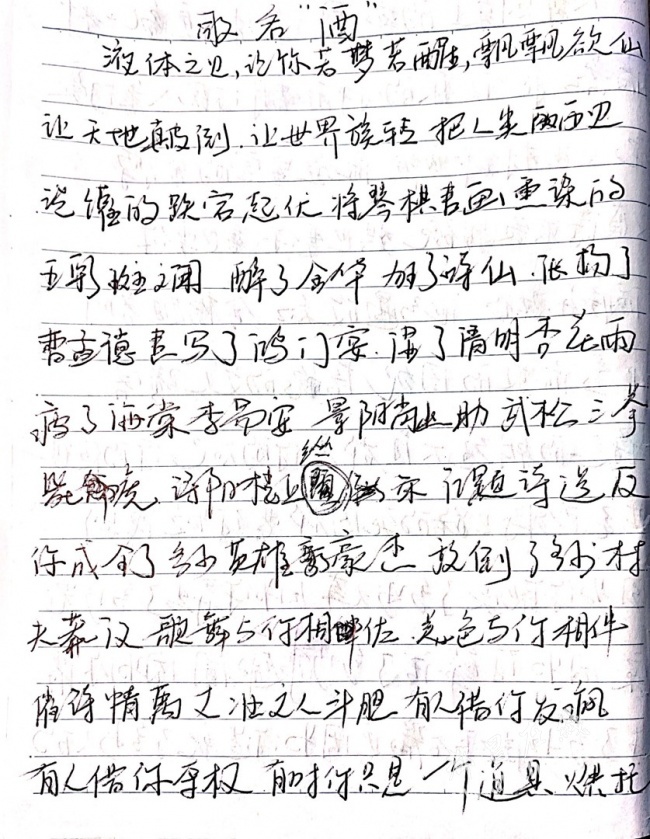 歌名"酒"
液体之见,论你若梦若醒,飘飘欲仙
让天地颠倒.让世界旋转 把人类两西边
说的跌宕起伏 将琴棋书画熏染的
五彩 醉了金华 加了诗仙.张扬了
曹孟德 书写了鸿门宴.湿了清明杏花雨
瘦了海棠李易安 景阳岗助武松三拳
毙虎,浔阳楼上纵宋江题诗造反
你成全了多少英雄豪杰 放倒了多少村
夫莽汉 歌舞与你相佐.美色与你相伴
催诗情万丈 壮文人斗胆 有人借你发疯
有人借你弄权 有时你只是一个道具